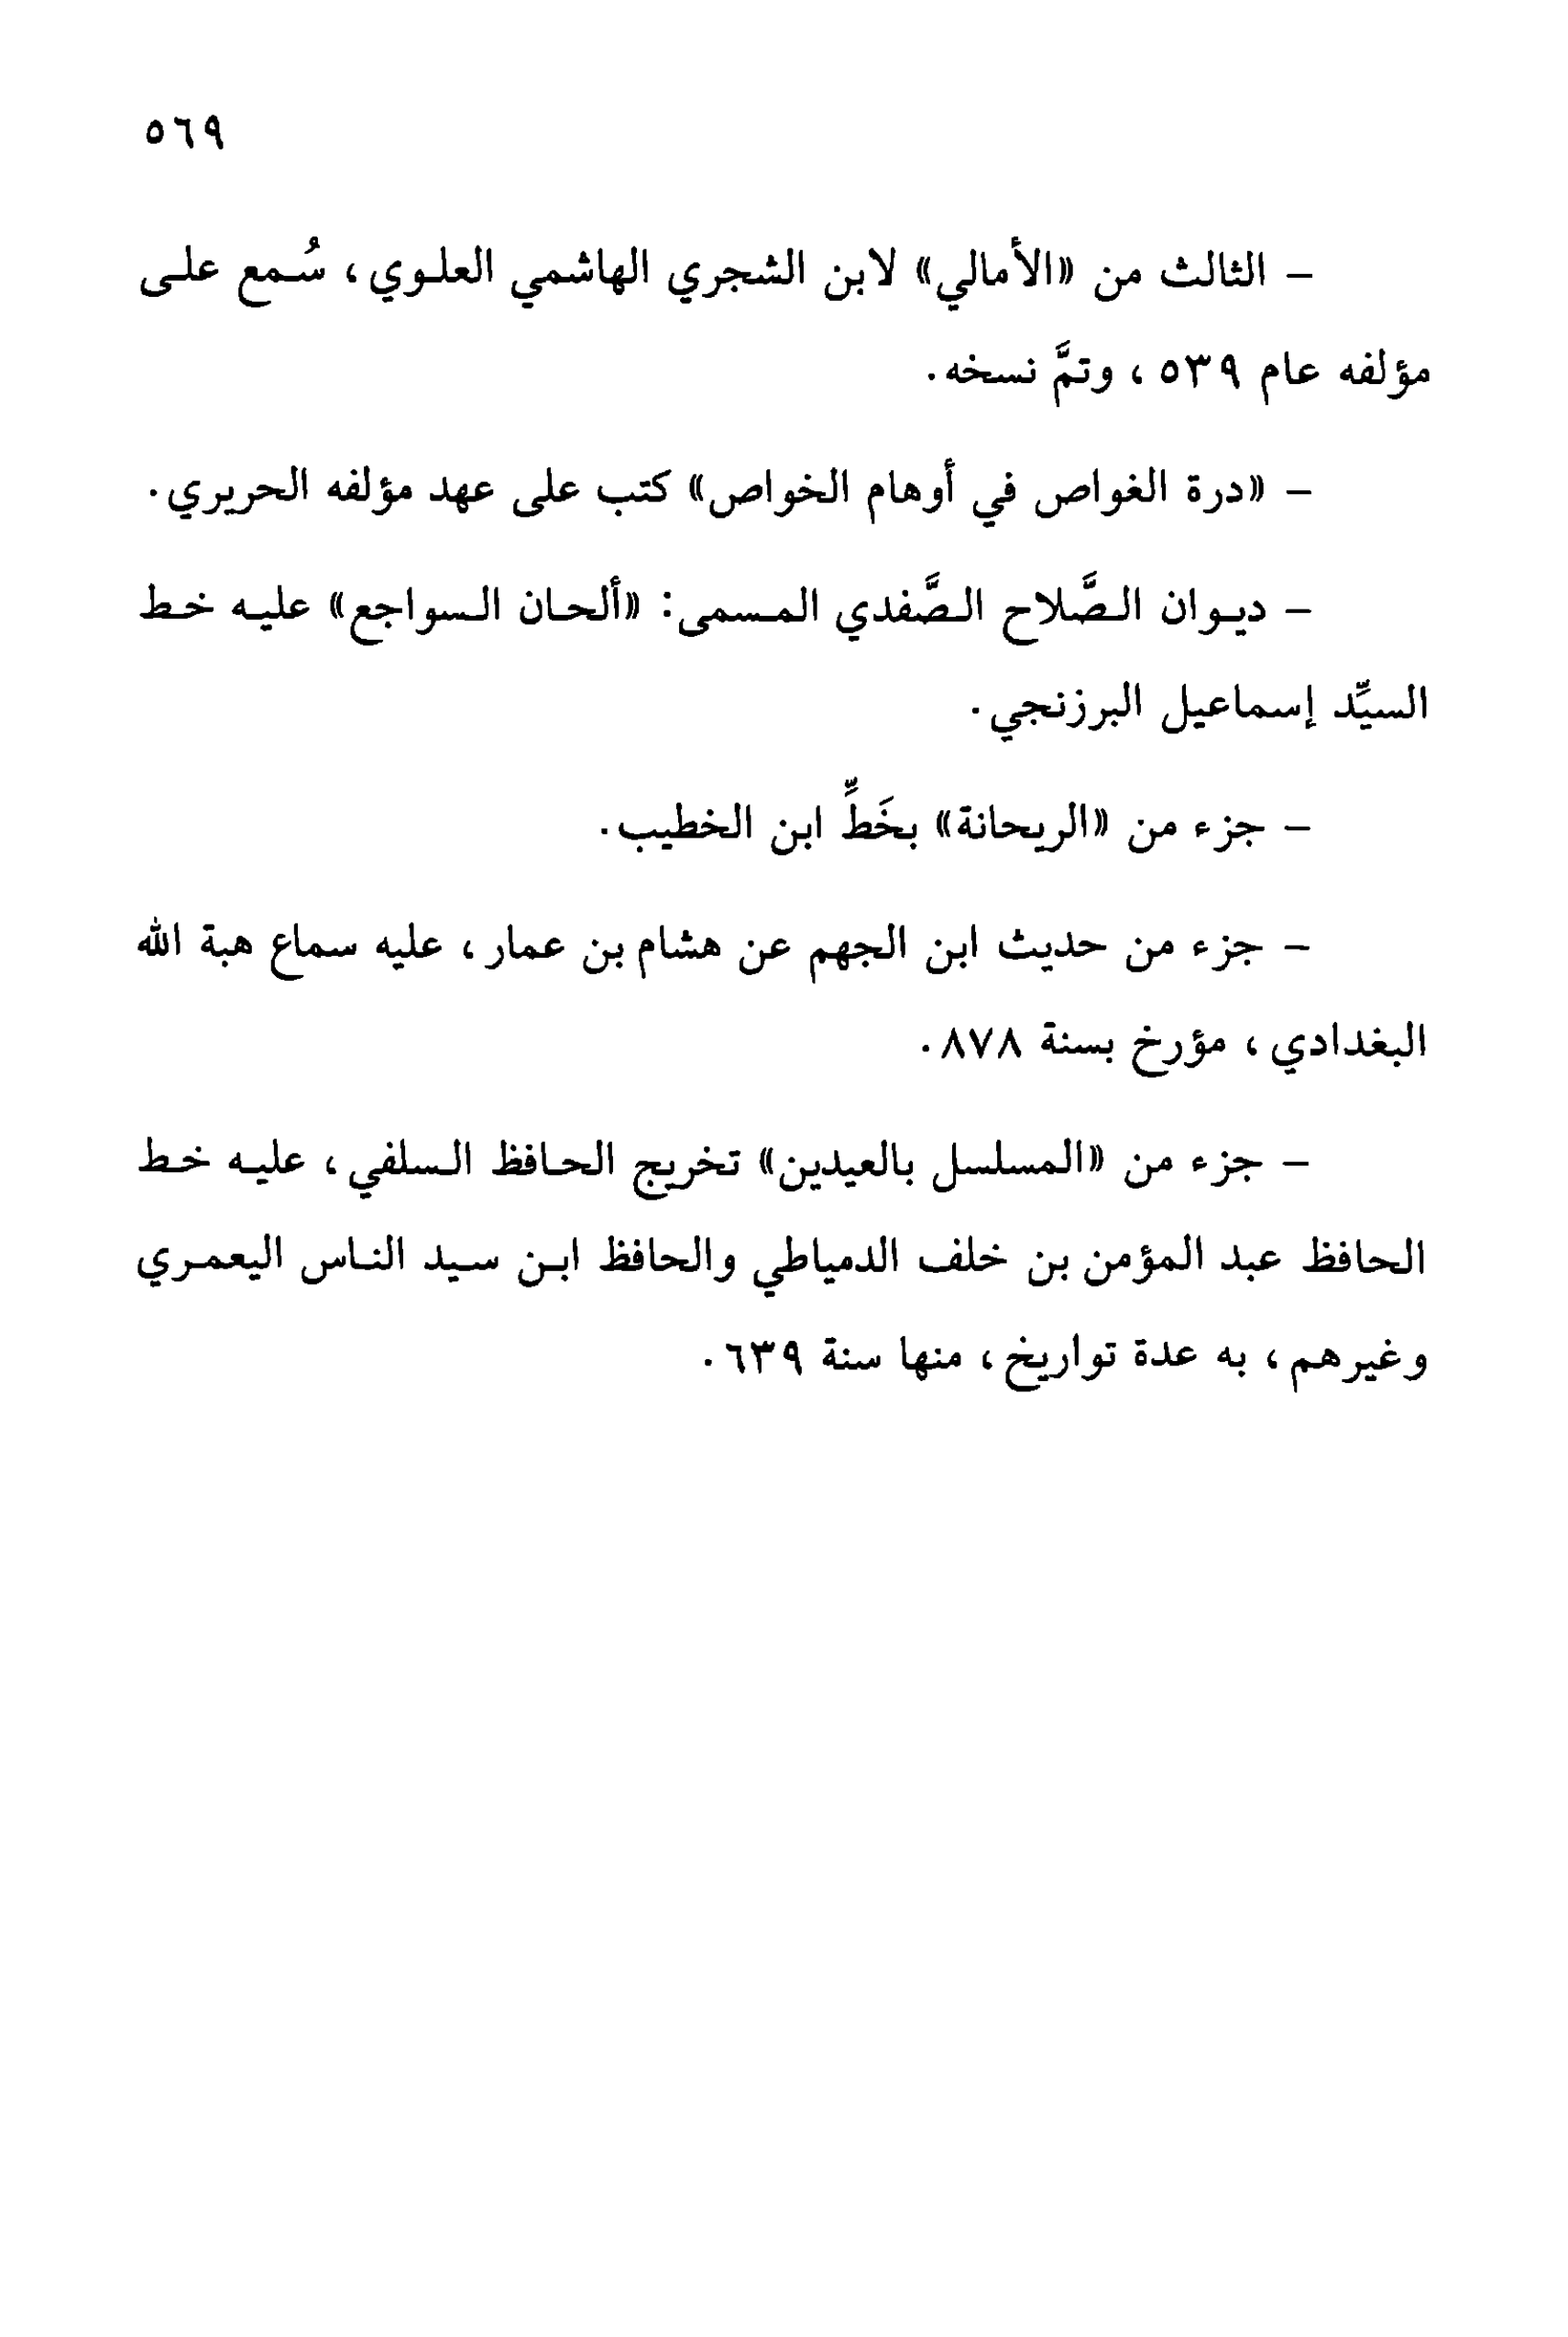 ٥٦٩
– الثالث من «الأمالي» لابن الشجري الهاشمي العلوي، سُمع على
مؤلفه عام ٥٣٩، وتمَّ نسخه.
– «درة الغواص في أوهام الخواص» كتب على عهد مؤلفه الحريري.
– ديوان الصَّلاح الصَّفدي المسمى: «ألحان السواجع» عليه خط
السيِّد إسماعيل البرزنجي.
– جزء من «الريحانة» بخَطِّ ابن الخطيب.
– جزء من حديث ابن الجهم عن هشام بن عمار، عليه سماع هبة الله
البغدادي، مؤرخ بسنة ٨٧٨.
– جزء من «المسلسل بالعيدين» تخريج الحافظ السلفي، عليه خط
الحافظ عبد المؤمن بن خلف الدمياطي والحافظ ابن سيد الناس اليعمري
وغيرهم، به عدة تواريخ، منها سنة ٦٣٩.